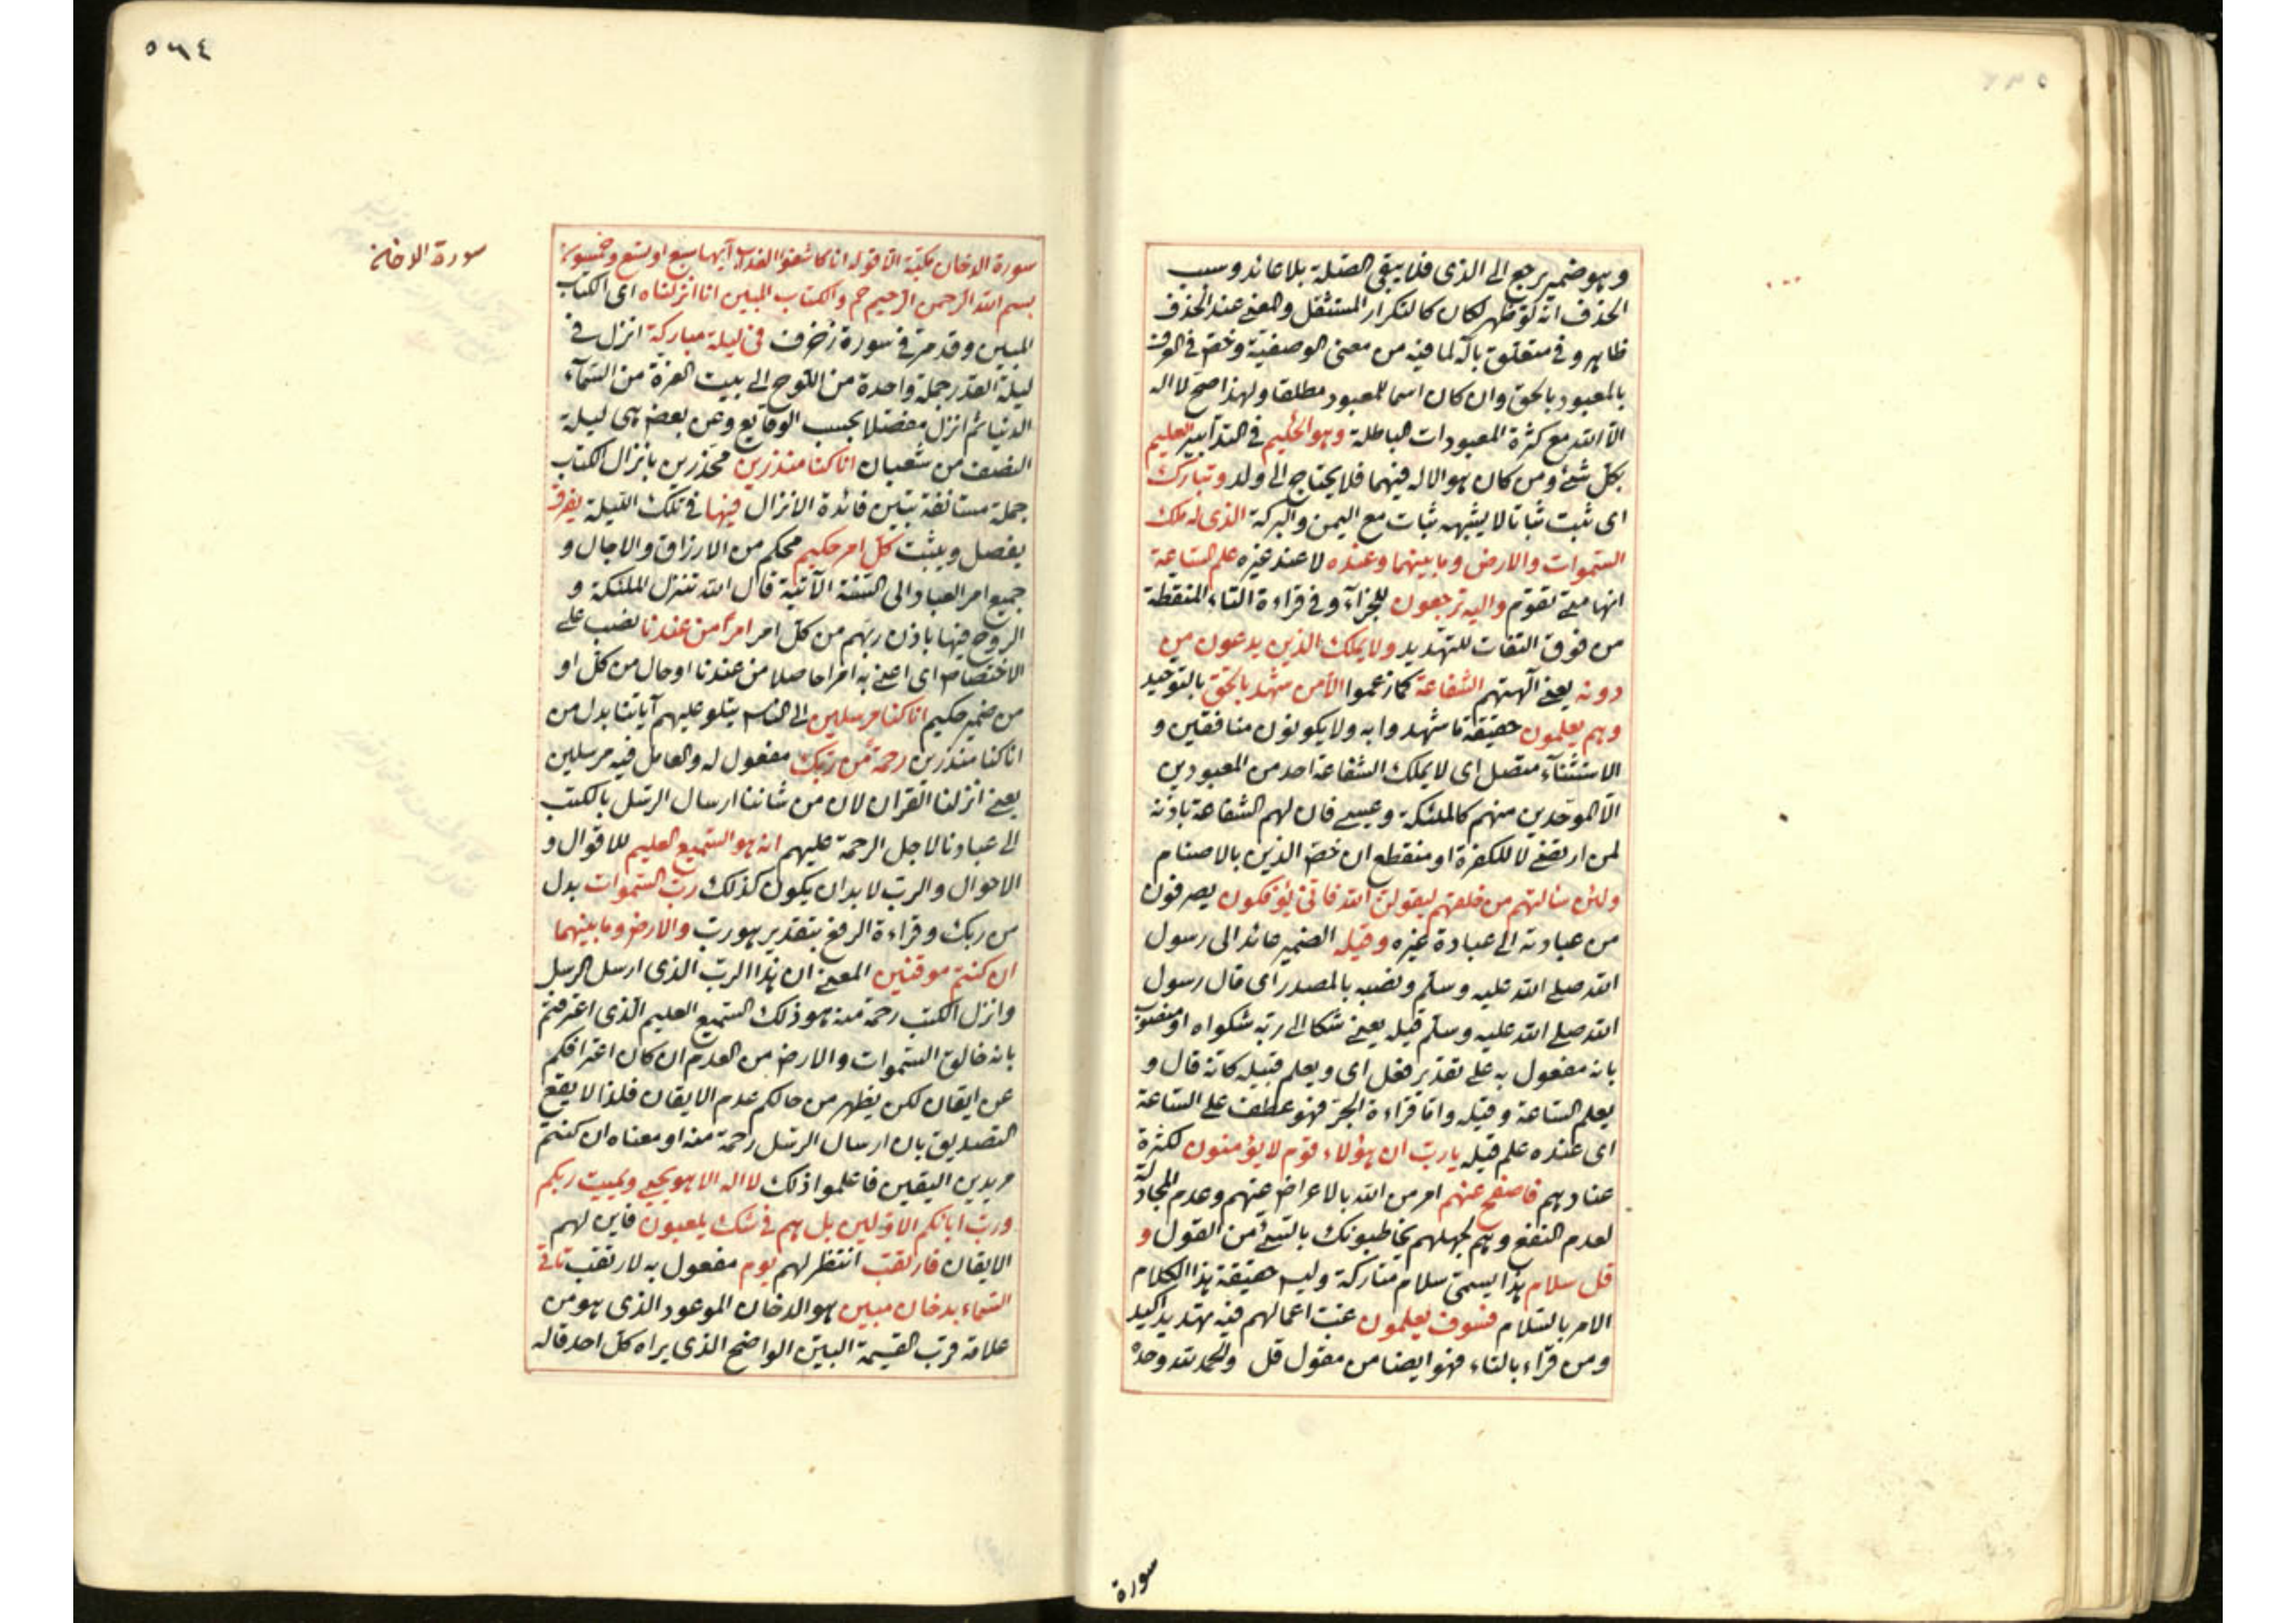 وهو ضمير يرجع الى الذى فلا يبقى الصلة بلا عائد وسبب
الحذف انه لو ظهر لكان كالتكرار المستثقل والمعنى عند الحذف
ظاهر وفى متعلق باله لما فيه من معنى الوصفية وخص فى العرف
بالمعبود بالحق وان كان اسما للمعبود مطلقا ولهذا صح لا اله
الا الله مع كثرة المعبودات الباطلة وهو الحكيم فى التدابير العليم
بكل شئ ومن كان هو الاله فيهما فلا يحتاج الى ولد وتبارك
اى ثبت ثباتا لا يشبهه ثبات مع اليمن والبركة الذى له ملك
السموات والارض وما بينهما وعنده لا عند غيره علم الساعة
انها متى تقوم واليه ترجعون للجزآء وفى قراءة التاء المنقطة
من فوق التفات للتهديد ولا يملك الذين يدعون من
دونه يعنى آلهتهم الشفاعة كما زعموا الا من شهد بالحق بالتوحيد
وهم يعلمون حقيقة ما شهدوا به ولا يكونون منافقين و
الاستثنآء متصل اى لا يملك الشفاعة احد من المعبودين
الا الموحدين منهم كالملئكة وعيسى فان لهم الشفاعة باذنه
لمن ارتضى لا للكفرة او منقطع ان خص الذين بالاصنام
ولئن سالتهم من خلقهم ليقولن الله فانى يؤفكون يصرفون
من عبادته الى عبادة غيره وقيله الضمير عائد الى رسول
الله صلى الله عليه وسلم ونصبه بالمصدر اى قال رسول
الله صلى الله عليه وسلم قيله يعنى شكا الى ربه شكواه او منصوب
بانه مفعول به على تقدير فعل اى ويعلم قيله كانه قال و
يعلم الساعة وقيله واما قراءة الجر فهو عطف على الساعة
اى عنده علم قيله يارب ان هؤلاء قوم لا يؤمنون لكثرة
عنادهم فاصفح عنهم امر من الله بالاعراض عنهم وعدم المجادلة
لعدم النفع وهم لجهلهم يخاطبونك بالسئ من القول و
قل سلام هذا يسمى سلام متاركة وليس حقيقة هذا الكلام
الامر بالسلام فسوف يعلمون غب اعمالهم فيه تهديد اكيد
ومن قرآء بالتاء فهو ايضا من مقول قل والحمد لله وحده
سورة
٥٦٤
سورة الدخان
سورة الدخان مكية الا قوله انا كاشفوا العذاب آيها سبع او تسع وخمسون
بسم الله الرحمن الرحيم حم والكتاب المبين انا انزلناه اى الكتاب
المبين وقد مر فى سورة زخرف فى ليلة مباركة انزل فى
ليلة القدر جملة واحدة من اللوح الى بيت العزة من السمآء
الدنيا ثم انزل مفصلا بحسب الوقايع وعن بعض هى ليلة
النصف من شعبان انا كنا منذرين محذرين بانزال الكتاب
جملة مستانفة تبين فائدة الانزال فيها فى تلك الليلة يفرق
يفصل ويثبت كل امر حكيم محكم من الارزاق والاجال و
جميع امر العباد الى السنة الآتية قال الله تنزل الملئكة و
الروح فيها باذن ربهم من كل امر امرا من عندنا نصب على
الاختصاص اى اعنى به امرا حاصلا من عندنا او حال من كل او
من ضمير حكيم انا كنا مرسلين الى الناس يتلو عليهم آياتنا بدل من
انا كنا منذرين رحمة من ربك مفعول له والعامل فيه مرسلين
يعنى انزلنا القران لان من شاننا ارسال الرسل بالكتب
الى عبادنا لاجل الرحمة عليهم انه هو السميع العليم للاقوال و
الاحوال والرب لابد ان يكون كذلك رب السموات بدل
من ربك وقراءة الرفع بتقدير هو رب والارض وما بينهما
ان كنتم موقنين المعنى ان هذا الرب الذى ارسل الرسل
وانزل الكتب رحمة منه هو ذلك السميع العليم الذى اعترفتم
بانه خالق السموات والارض من العدم ان كان اعترافكم
عن ايقان لكن يظهر من حالكم عدم الايقان فلذا لا يقع
التصديق بان ارسال الرسل رحمة منه او معناه ان كنتم
مريدين اليقين فاعلموا ذلك لا اله الا هو يحيى ويميت ربكم
ورب ابائكم الاولين بل هم فى شك يلعبون فاين لهم
الايقان فارتقب انتظر لهم يوم مفعول به لارتقب تاتى
السماء بدخان مبين هو الدخان الموعود الذى هو من
علامة قرب القيمة البين الواضح الذى يراه كل احد قاله